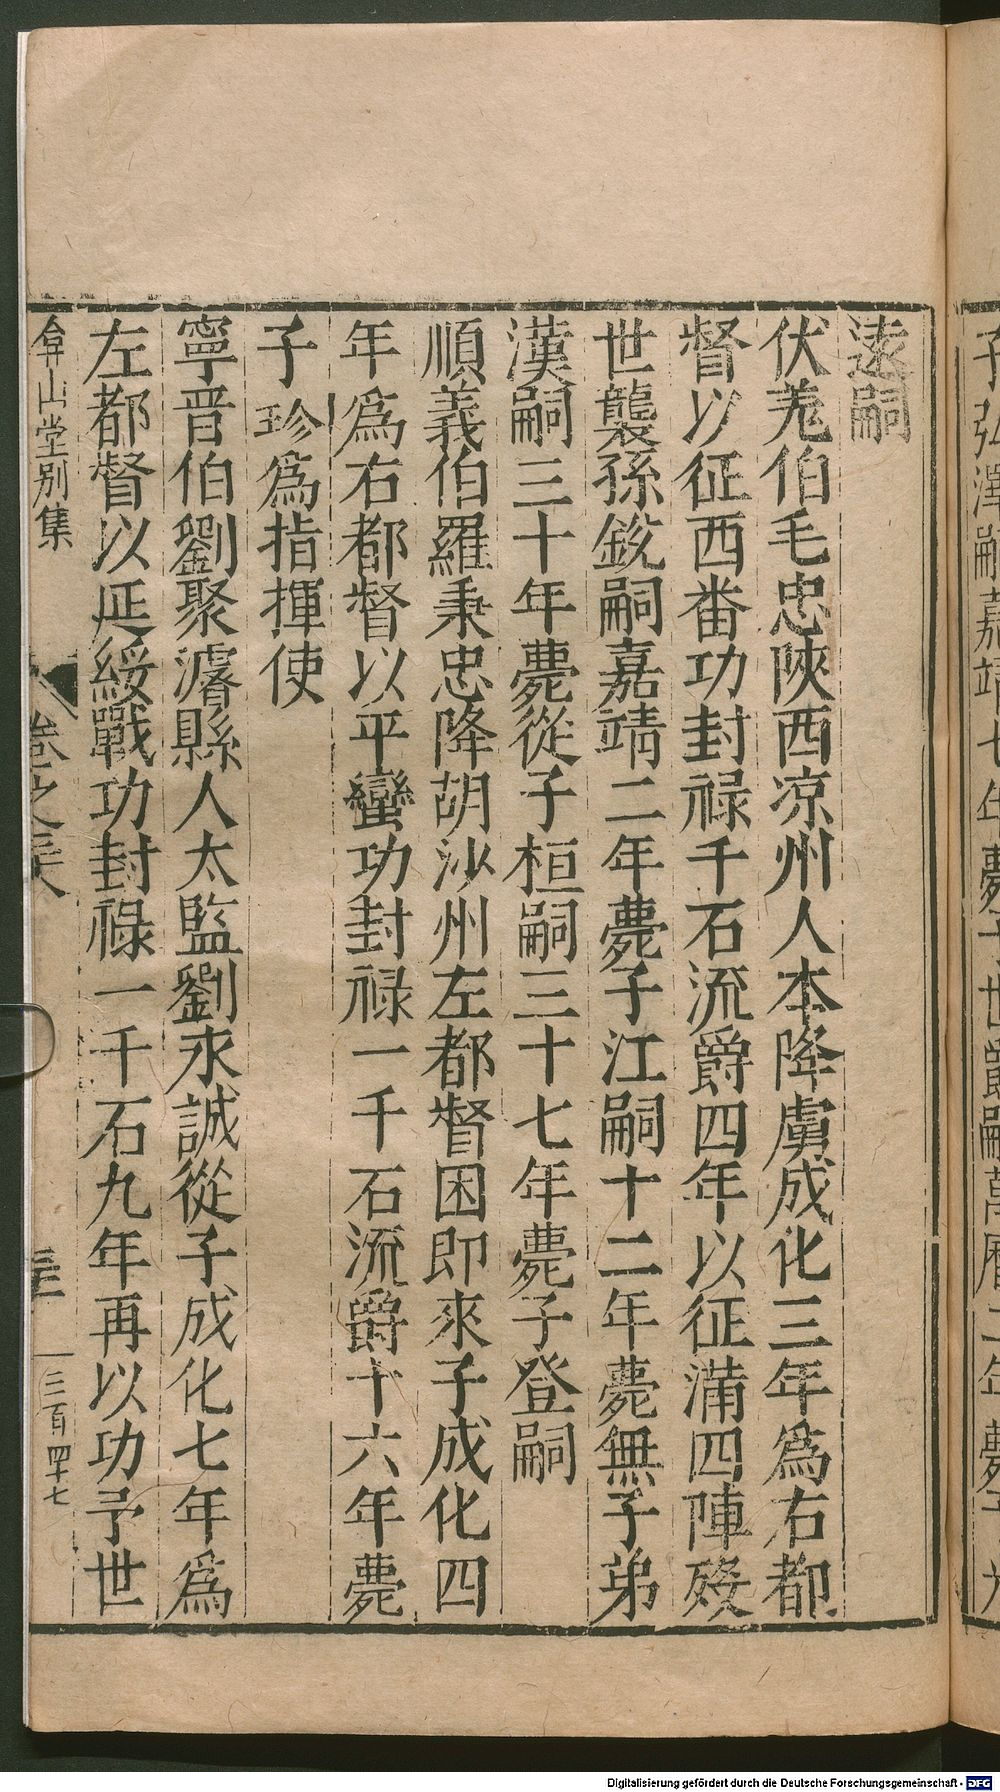 遠嗣
伏羌伯毛忠陝西凉州人本降虜成化三年為右都
督以征西番功封禄千石流爵四年以征滿四陣殁
世襲孫鋭嗣嘉靖二年薨子江嗣十二年薨無子弟
漢嗣三十年薨從子桓嗣三十七年薨子登嗣
順義伯羅秉忠降胡沙州左都督困即來子成化四
年為右都督以平蠻功封禄一千石流爵十六年薨
子珍為指揮使
寧晋伯劉聚濬縣人太監劉永誠從子成化七年為
左都督以延綏戰功封禄一千石九年再以功予世
弇山堂别集
卷之三十八
三百四十七
Digitalisierung gefördert durch die Deutsche Forschungsgemeinschaft - DFG